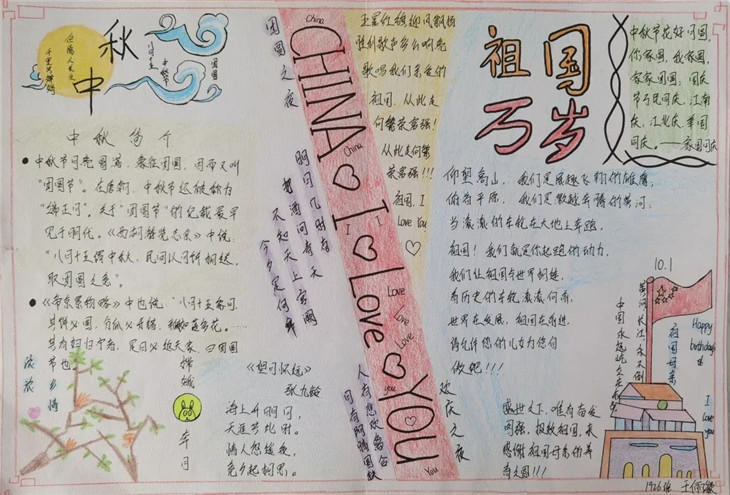 中
秋
但愿人长久
千里共婵娟
中秋简介
中秋节月亮圆满,象征团圆,因而又叫
“团圆节”。在唐朝,中秋节还被称为
“端正月”。关于“团圆节”的记载最早
见于明代。《西湖游览志余》中说:
“八月十五谓中秋,民间以月饼相遗,
取团圆之意”。
《帝京景物略》中也说:“八月十五祭月,
其饼必圆,分瓜必牙错,
节也。
浓浓
乡情
嫦娥
奔月
《望月怀远》
张九龄
海上升明月,
天涯共此时。
情人怨遥夜,
竟夕起相思。
团圆之夜
明月几时有
把酒问青天
不知天上宫阙
今夕是何年
人有悲欢离合
月有阴晴圆缺
China
CHINA
China
I
I
I
Love
Love
Love
Love
you
YOU
You
五星红旗迎风飘扬
胜利歌声多么响亮
歌唱我们亲爱的
祖国,从此走
向繁荣富强!
从此走向繁
荣富强!!!
祖国,I
Love You
祖国
万岁
中秋节花好月圆,
你家圆,我家圆,
家家团圆;国庆
节万民同庆,江南
庆,江北庆,举国
同庆。——家圆国庆
仰望高山,我们是展翅飞翔的雄鹰,
俯首平原,我们是默默奔腾的黄河,
当滚滚的车轮在大地上奔跑,
祖国!我们就是你起跑的动力,
我们让祖国与世界相连,
看历史的车轮滚滚向前,
世界在发展,祖国在前进,
请允许您的儿女为您自
傲吧!!!
欢庆之夜
盛世之下,唯有奋发
图强,报效祖国,来
感谢祖国母亲的养
育之恩!!!
10.1
黄河长江永大
中国永远屹立东方
祖国母亲
Happy
birthday
I
love
you